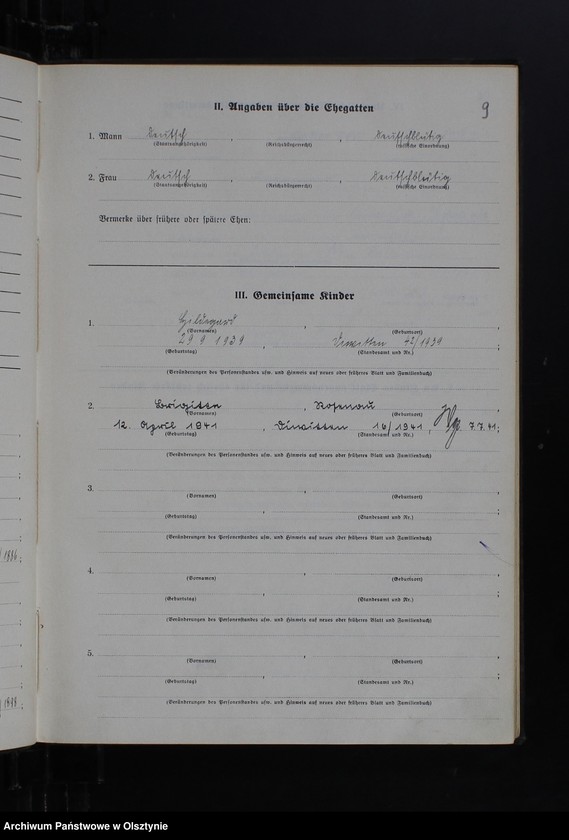 9
II. Angaben über die Ehegatten
1. Mann Deutsch , , Deutschblütig
(Staatsangehörigkeit) (Reichsbürgerrecht) (rassische Einordnung)
2. Frau Deutsch , , Deutschblütig
(Staatsangehörigkeit) (Reichsbürgerrecht) (rassische Einordnung)
Vermerke über frühere oder spätere Ehen:
III. Gemeinsame Kinder
1. Hildegard , ,
(Vornamen) (Geburtsort)
29 9 1939 , Diwitten 42/1939 ;
(Geburtstag) (Standesamt und Nr.)
(Veränderungen des Personenstandes usw. und Hinweis auf neues oder früheres Blatt und Familienbuch)
2. Brigitte , Rosenau ,
(Vornamen) (Geburtsort)
12. April 1941 , Diwitten 16/1941, 7.7.41;
(Geburtstag) (Standesamt und Nr.)
(Veränderungen des Personenstandes usw. und Hinweis auf neues oder früheres Blatt und Familienbuch)
3. , ,
(Vornamen) (Geburtsort)
, ;
(Geburtstag) (Standesamt und Nr.)
(Veränderungen des Personenstandes usw. und Hinweis auf neues oder früheres Blatt und Familienbuch)
4. , ,
(Vornamen) (Geburtsort)
, ;
(Geburtstag) (Standesamt und Nr.)
(Veränderungen des Personenstandes usw. und Hinweis auf neues oder früheres Blatt und Familienbuch)
5. , ,
(Vornamen) (Geburtsort)
, ;
(Geburtstag) (Standesamt und Nr.)
(Veränderungen des Personenstandes usw. und Hinweis auf neues oder früheres Blatt und Familienbuch)
Archiwum Państwowe w Olsztynie